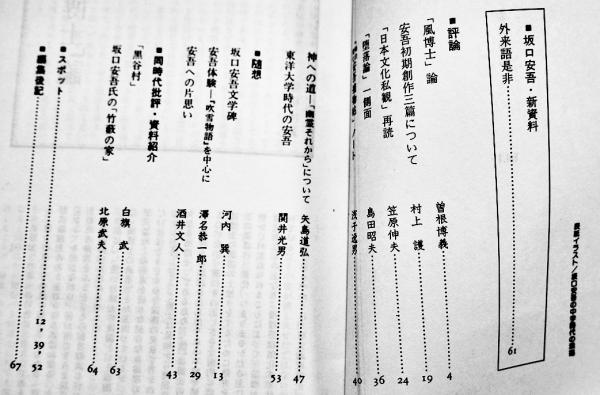 ■坂口安吾・新資料
外来語是非……61
■評論
「風博士」論 曾根博義……4
安吾初期創作三篇について 村上 護……19
「日本文化私観」再読 笠原伸夫……24
「堕落論」一側面 島田昭夫……36
ノート 浅子逸男……40
神への道―「幽霊それから」について 矢島道弘……47
東洋大学時代の安吾 関井光男……53
■随想
坂口安吾文学碑 河内 巽……13
安吾体験―『吹雪物語』を中心に 澤名恭一郎……29
安吾への片思い 酒井文人……43
■同時代批評・資料紹介
「黒谷村」 白旗 武……63
坂口安吾氏の「竹藪の家」 北原武夫……64
■スポット……12，39，52
■編集後記……67